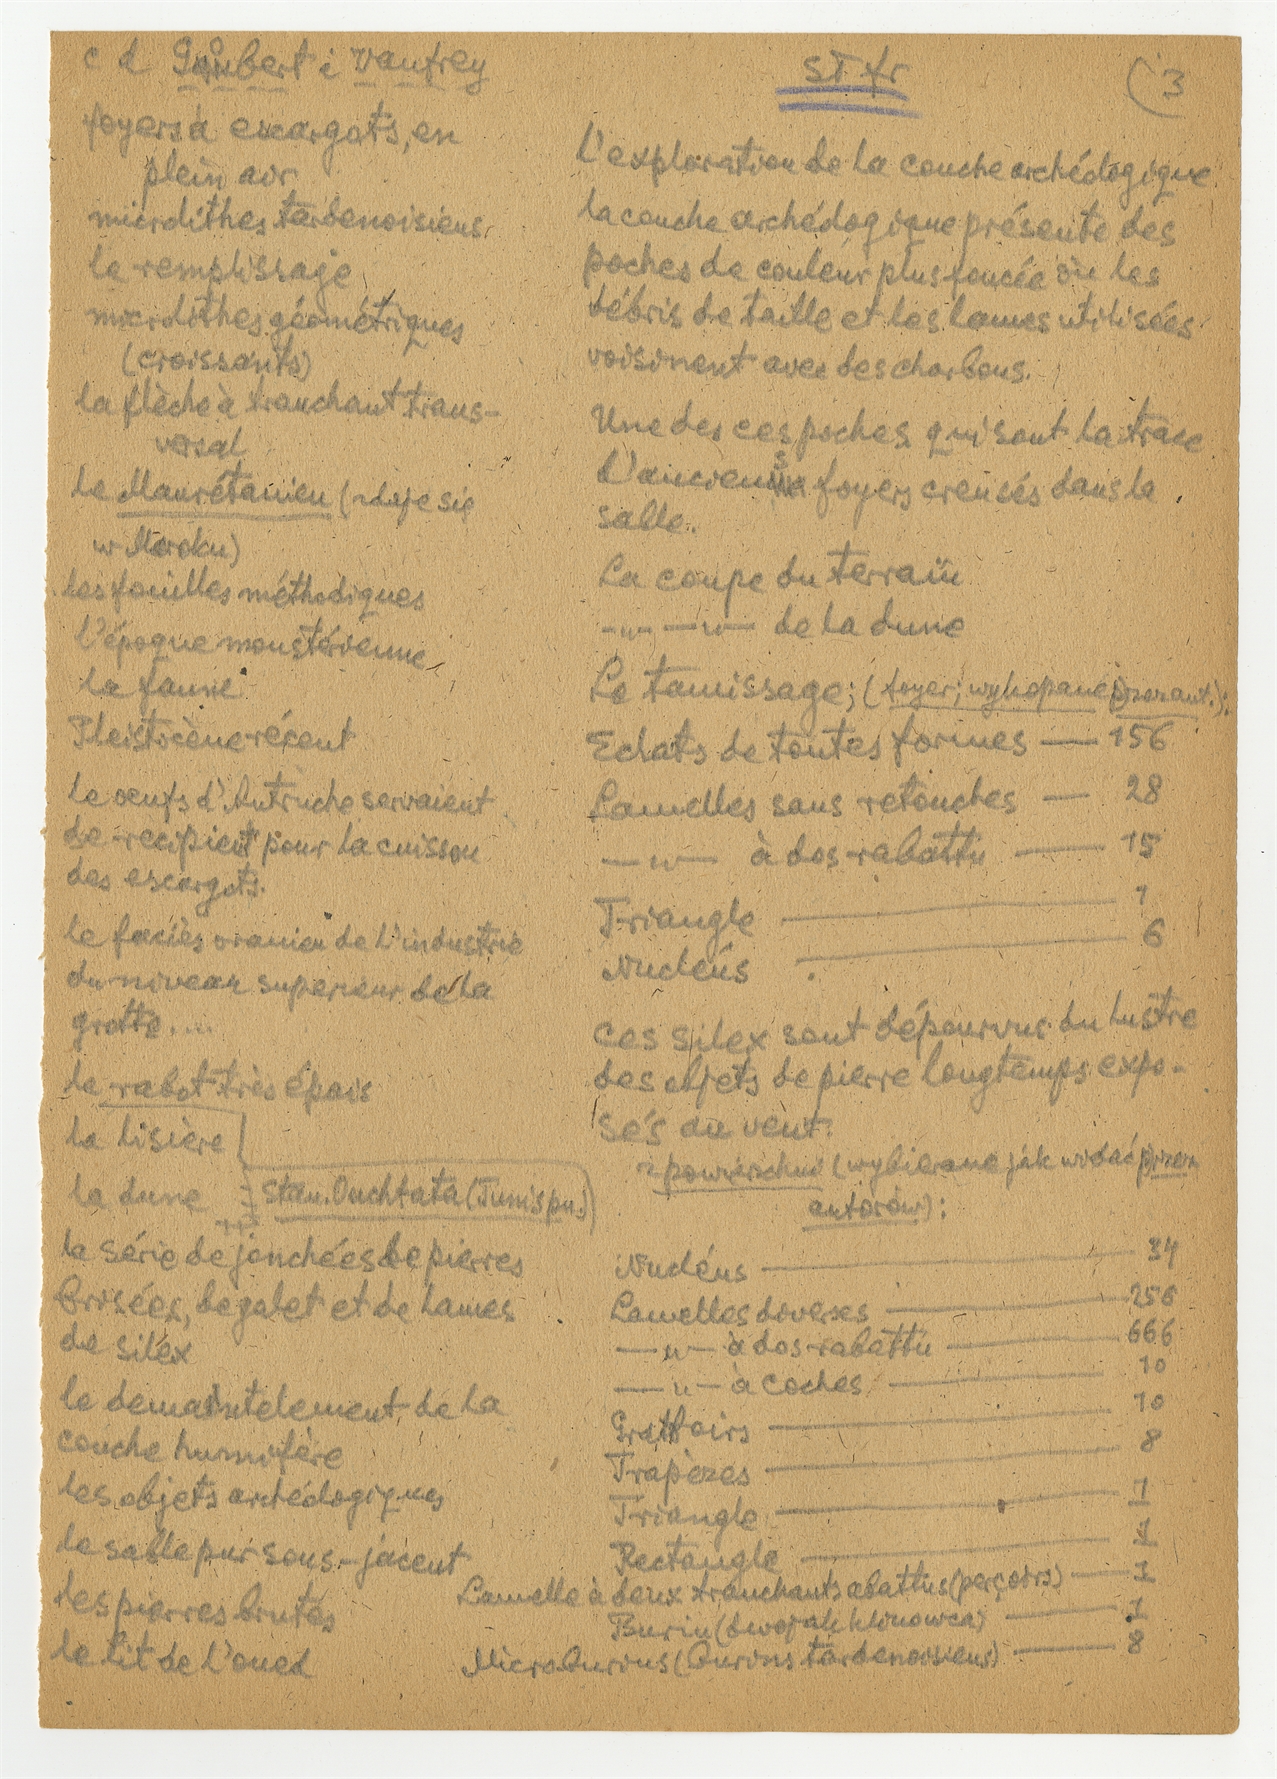 c d Goubert i Vaufrey
foyers à escargots, en
plein air
microlithes tardenoisiens
le remplissage
microlithes géométriques
(croissants)
la flèche à tranchant trans-
versal
le Maurétanien (zdaje się
w Maroku)
les fouilles méthodiques
l'époque moustérienne
la faune
Pleistocène récent
le oeufs d'Autruche servaient
de recipient pour la cuisson
des escargots.
le faciès oranien de l'industrie
du niveau superieur de la
grotte....
le rabot très épais
la lisière
la dune
Stan. Ouchtata (Tunis pn.)
la série de jonchées de pierres
brisées, de galet et de lames
de silex
le demantelement de la
couche humifère
les objets archéologiques
le sable pur sous-jacent
les pierres brutes
le lit de l'oued
ST fr
(3
L'exploration de la couche archéologique
la couche archéologique présente des
poches de couleur plus foncée où les
débris de taille et les lames utilisées
voisinent avec des charbons.
Une des ces poches qui sont la trace
d'anciens foyers creusés dans le
sable.
La coupe du terrain
—"— —"— de la dune
Le tamissage; (foyer; wykopane przez aut.):
Eclats de toutes formes — 156
Lamelles sans retouches — 28
—"— à dos rabattu — 15
Triangle — 1
Nucléus — 6
ces silex sont dépourvus du lustre
des objets de pierre longtemps expo-
sés au vent.
z powierzchni (wybierane jak widać przez
autorów):
Nucléus — 34
Lamelles diverses — 256
—"— à dos rabattu — 666
—"— à coches — 10
Grattoirs — 10
Trapèzes — 8
Triangle — 1
Rectangle — 1
Lamelle à deux tranchants abattus (perçoirs) — 1
Burin (dwojak klinowca) — 1
Microburins (burins tardenoisiens) — 8